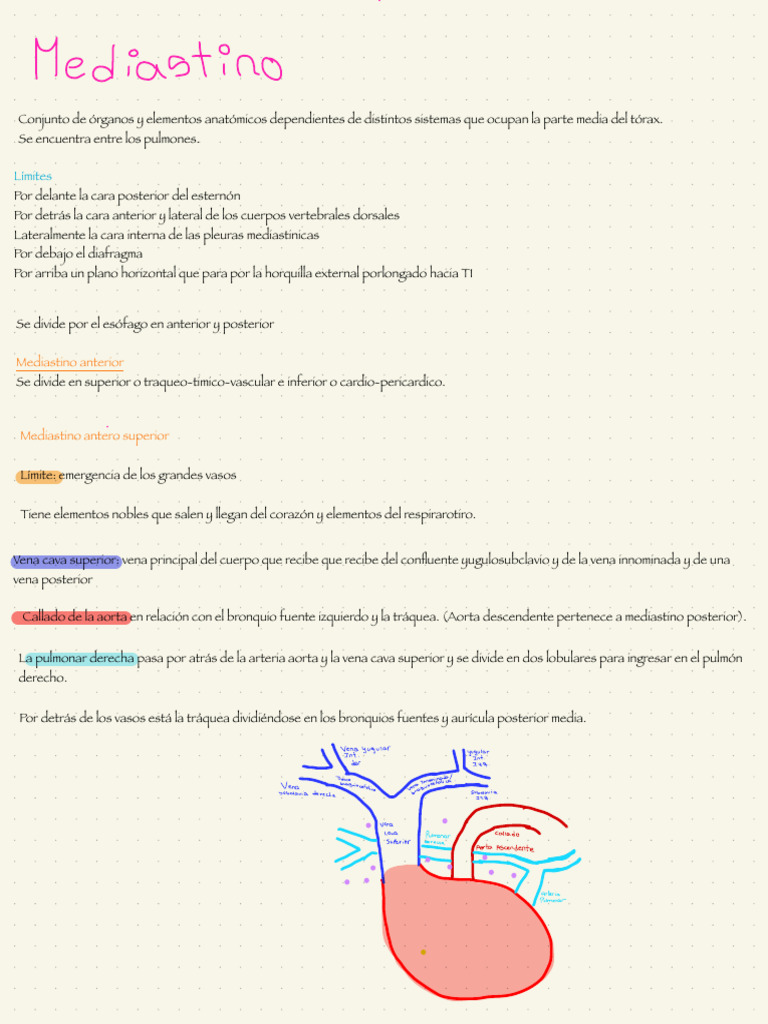 Mediastino
Conjunto de órganos y elementos anatómicos dependientes de distintos sistemas que ocupan la parte media del tórax.
Se encuentra entre los pulmones.
Límites
Por delante la cara posterior del esternón
Por detrás la cara anterior y lateral de los cuerpos vertebrales dorsales
Lateralmente la cara interna de las pleuras mediastinicas
Por debajo el diafragma
Por arriba un plano horizontal que para por la horquilla external porlongado hacia T1
Se divide por el esófago en anterior y posterior
Mediastino anterior
Se divide en superior o traqueo-timico-vascular e inferior o cardio-pericardico.
Mediastino antero superior
Límite: emergencia de los grandes vasos
Tiene elementos nobles que salen y llegan del corazón y elementos del respirarotiro.
Vena cava superior: vena principal del cuerpo que recibe que recibe del confluente yugulosubclavio y de la vena innominada y de una
vena posterior
Callado de la aorta en relación con el bronquio fuente izquierdo y la tráquea. (Aorta descendente pertenece a mediastino posterior).
La pulmonar derecha pasa por atrás de la arteria aorta y la vena cava superior y se divide en dos lobulares para ingresar en el pulmón
derecho.
Por detrás de los vasos está la tráquea dividiéndose en los bronquios fuentes y aurícula posterior media.
Vena yugular
Int.
der
yugular
Int
Izq
Vena
derecha
Vena
cava
superior
Pulmonar
callado
Aorta Ascendente
Pulmonar